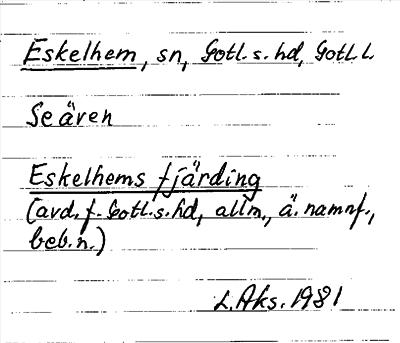 Eskelhem, sn, Gotl. s. hd, Gotl. l.
Se även
Eskelhems fjärding
(avd. f. Gotl. s. hd, allm., ä. namnf.,
beb.n.)
L. Aks. 1981